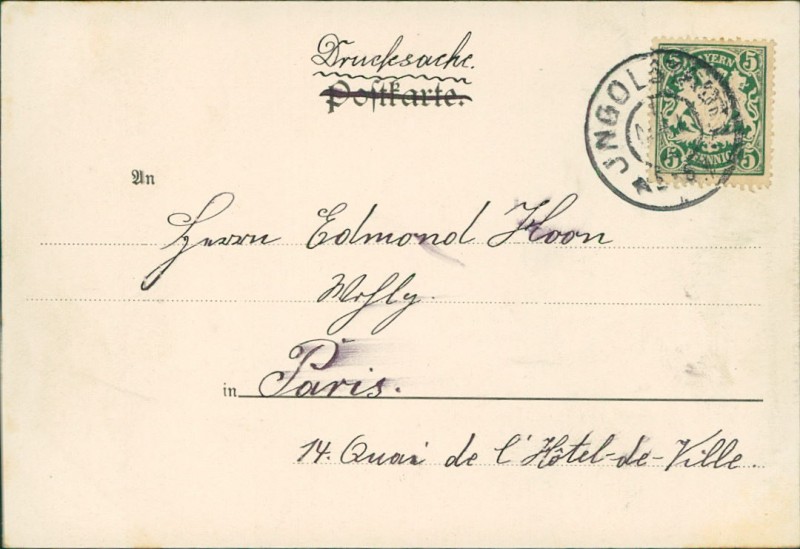 Drucksache.
Postkarte.
BAYERN
5 5
5 PFENNIG 5
An
Herrn Edmond Koon
Wohlg.
in Paris.
14. Quai de l'Hôtel-de-Ville.